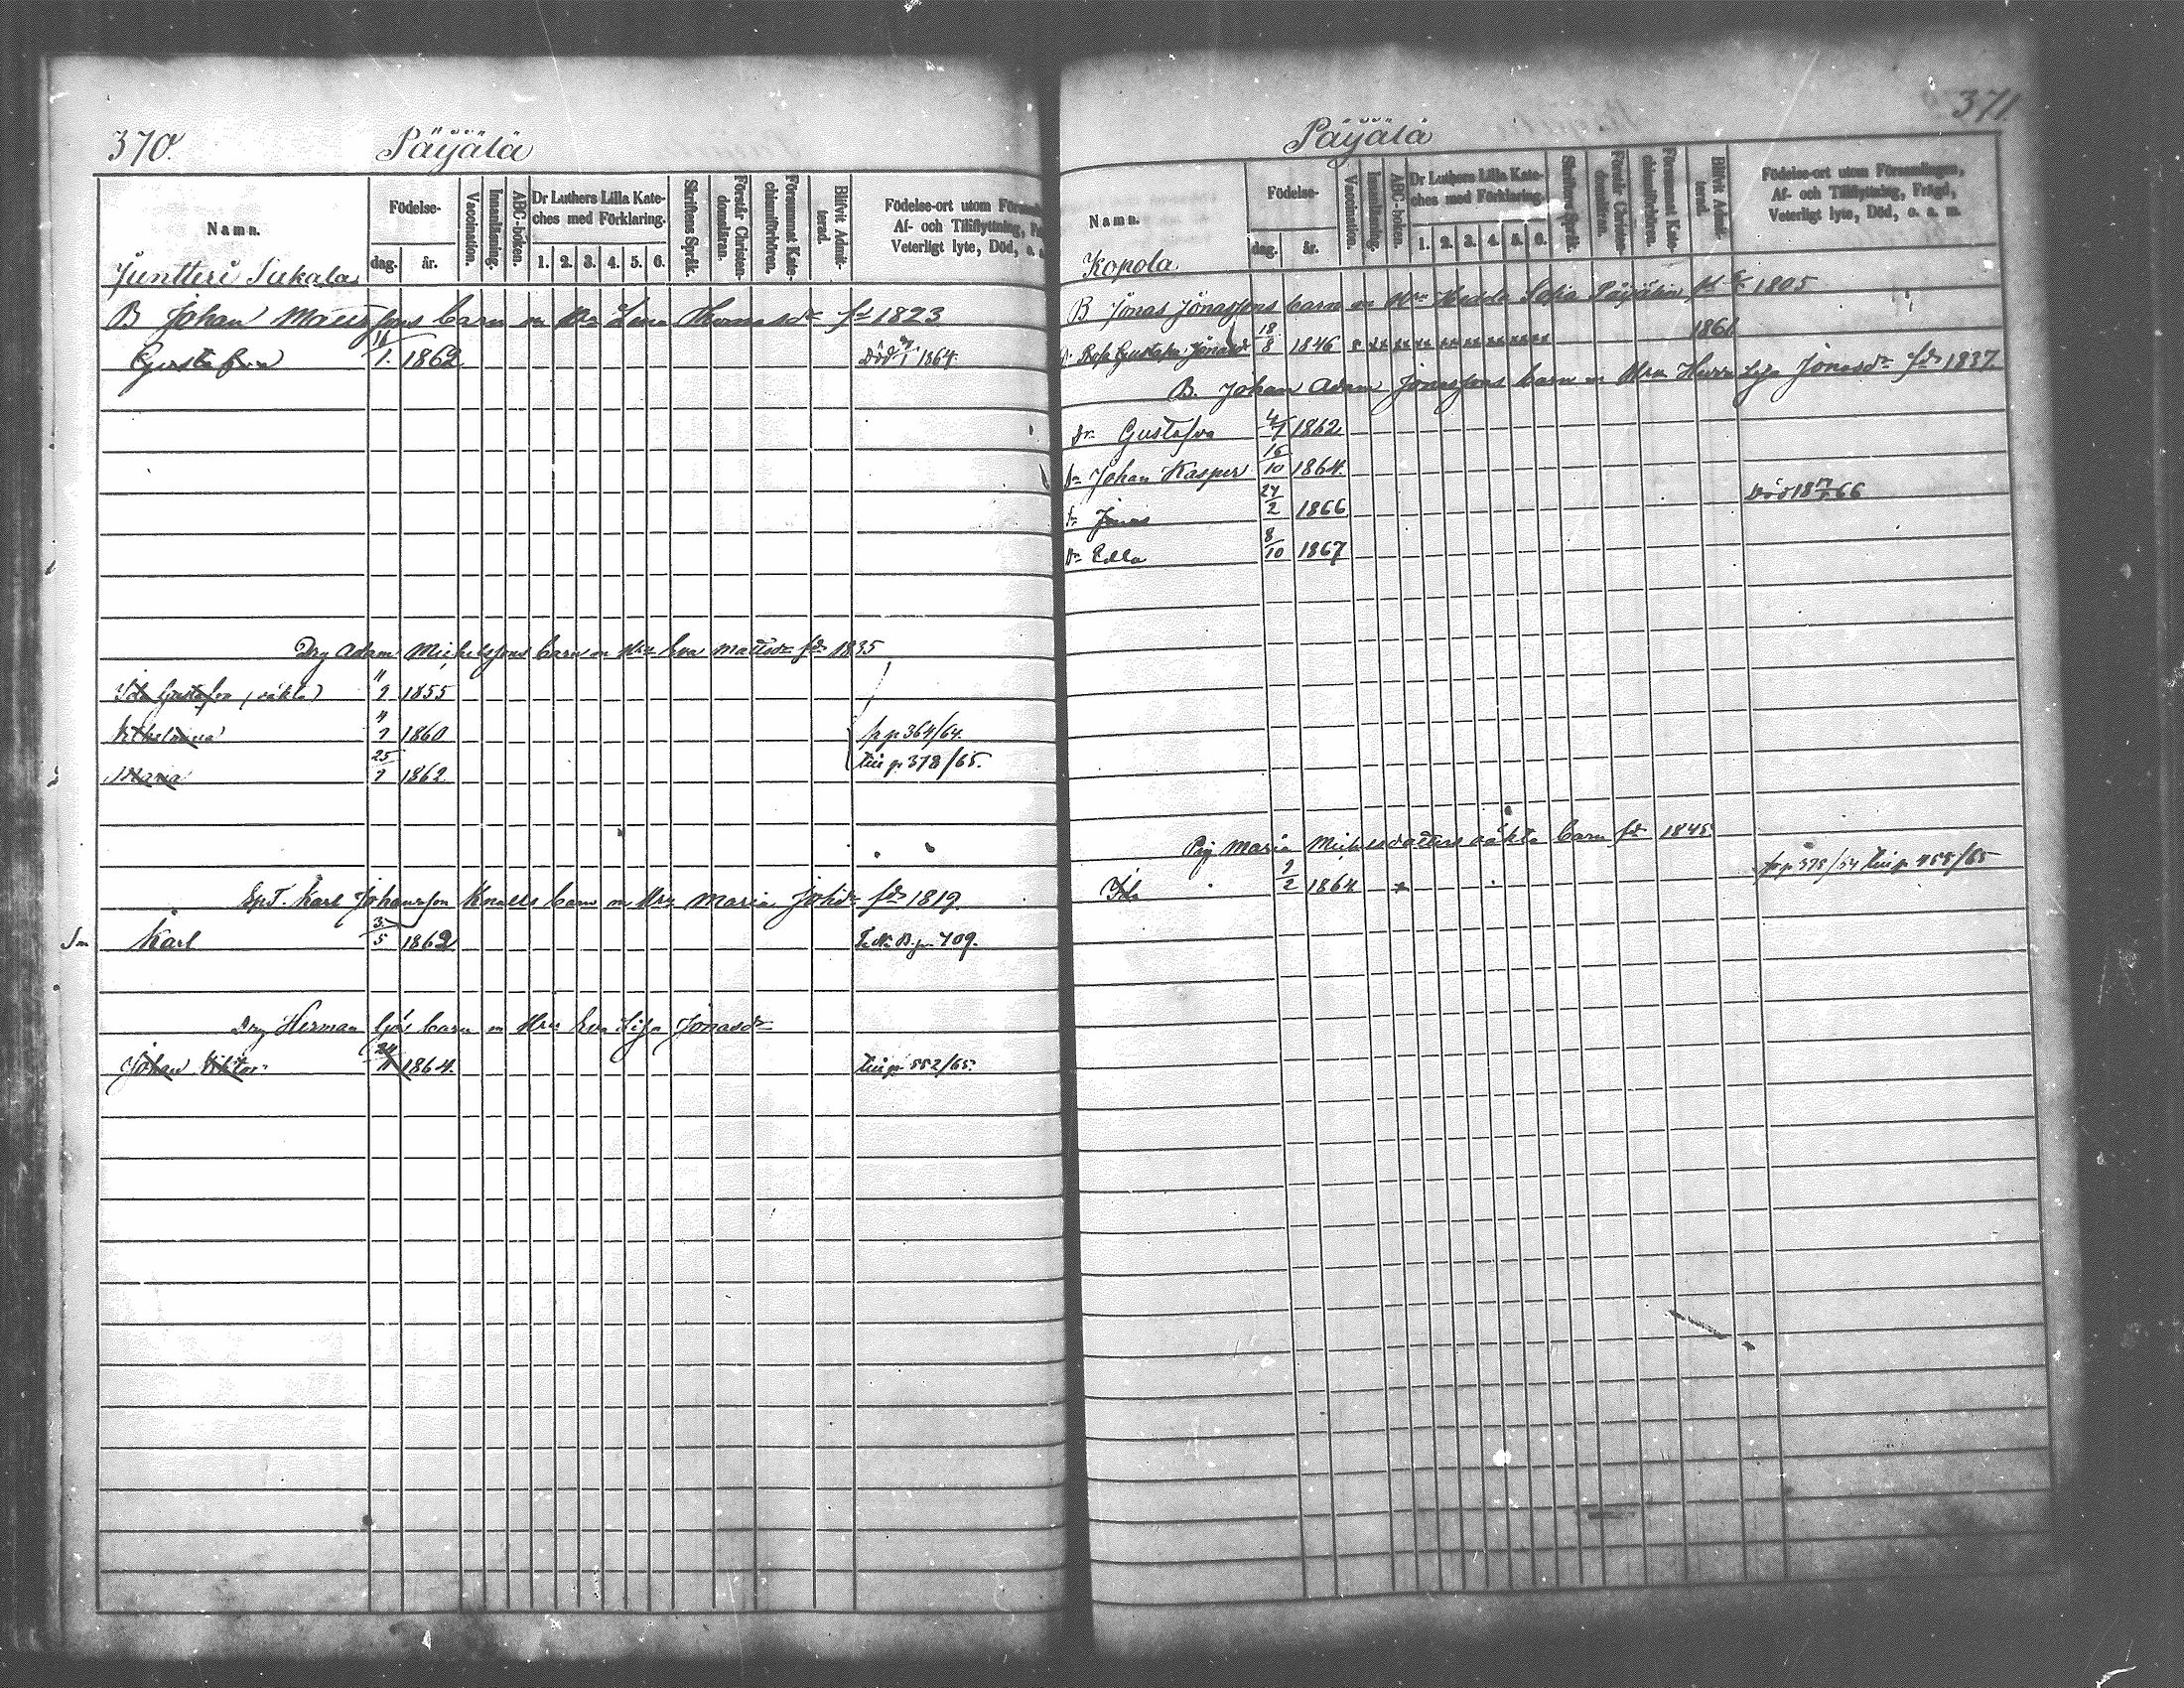 370.
Päÿälä
Namn.
Födelse-
dag.
år.
Vaccination.
Innanläsning.
ABC-boken.
Dr Luthers Lilla Kate-
ches med Förklaring.
1. 2. 3. 4. 5. 6.
Skriftens Språk.
Förstår Christen-
domsläran.
Försummat Kate-
chismiförhören.
Blifvit Admit-
terad.
Födelse-ort utom Församl
Af- och Tillflyttning, Fr
Veterligt lyte, Död, o. a.
Juntteri Sukala
B Johan Mattsfons barn m Hru Lena Thomasdr fd 1823
Gustafva 1. 1862 Död 1864.
Drg Adam Michelsfons barn m Hru Eva Mattsdr fdr 1835
Ida Gustafva (oäkta) 1855
Vilhelmina 1860 fr p 364/64.
Maria 25 1862 till p. 378/65.
Karl Johansfon Knalls barn m Hru Maria Johdr fdr 1819.
Sn Karl 3/5 1862 B. p. 709.
Drg Herman barn m Hru Eva Lisa Jonasdr
Johan Viktor 24 1864. till p 552/65.
371.
Päÿälä
Namn.
Födelse-
dag.
år.
Vaccination.
Innanläsning.
ABC-boken.
Dr Luthers Lilla Kate-
ches med Förklaring.
1. 2. 3. 4. 5. 6.
Skriftens Språk.
Förstår Christen-
domsläran.
Försummat Kate-
chismiförhören.
Blifvit Admit-
terad.
Födelse-ort utom Församlingen,
Af- och Tillflyttning, Frägd,
Veterligt lyte, Död, o. a. m.
Kopola
B Jonas Jonasfons barn m Hru Hedda Sofia Päÿäliä fd 1805
Gustafva Jonasdr 18/8 1846 1861
B. Johan Adam Jonasfons barn m Hru Lisa Jonasdr fdr 1837.
Dr Gustafva 1862
Johan Kasper 16/10 1864.
Jonas 24/2 1866 Död 18 66
Dr Edla 8/10 1867
Pig Maria Michelsdotters oäkta barn fd 1845
Ida 9/2 1864